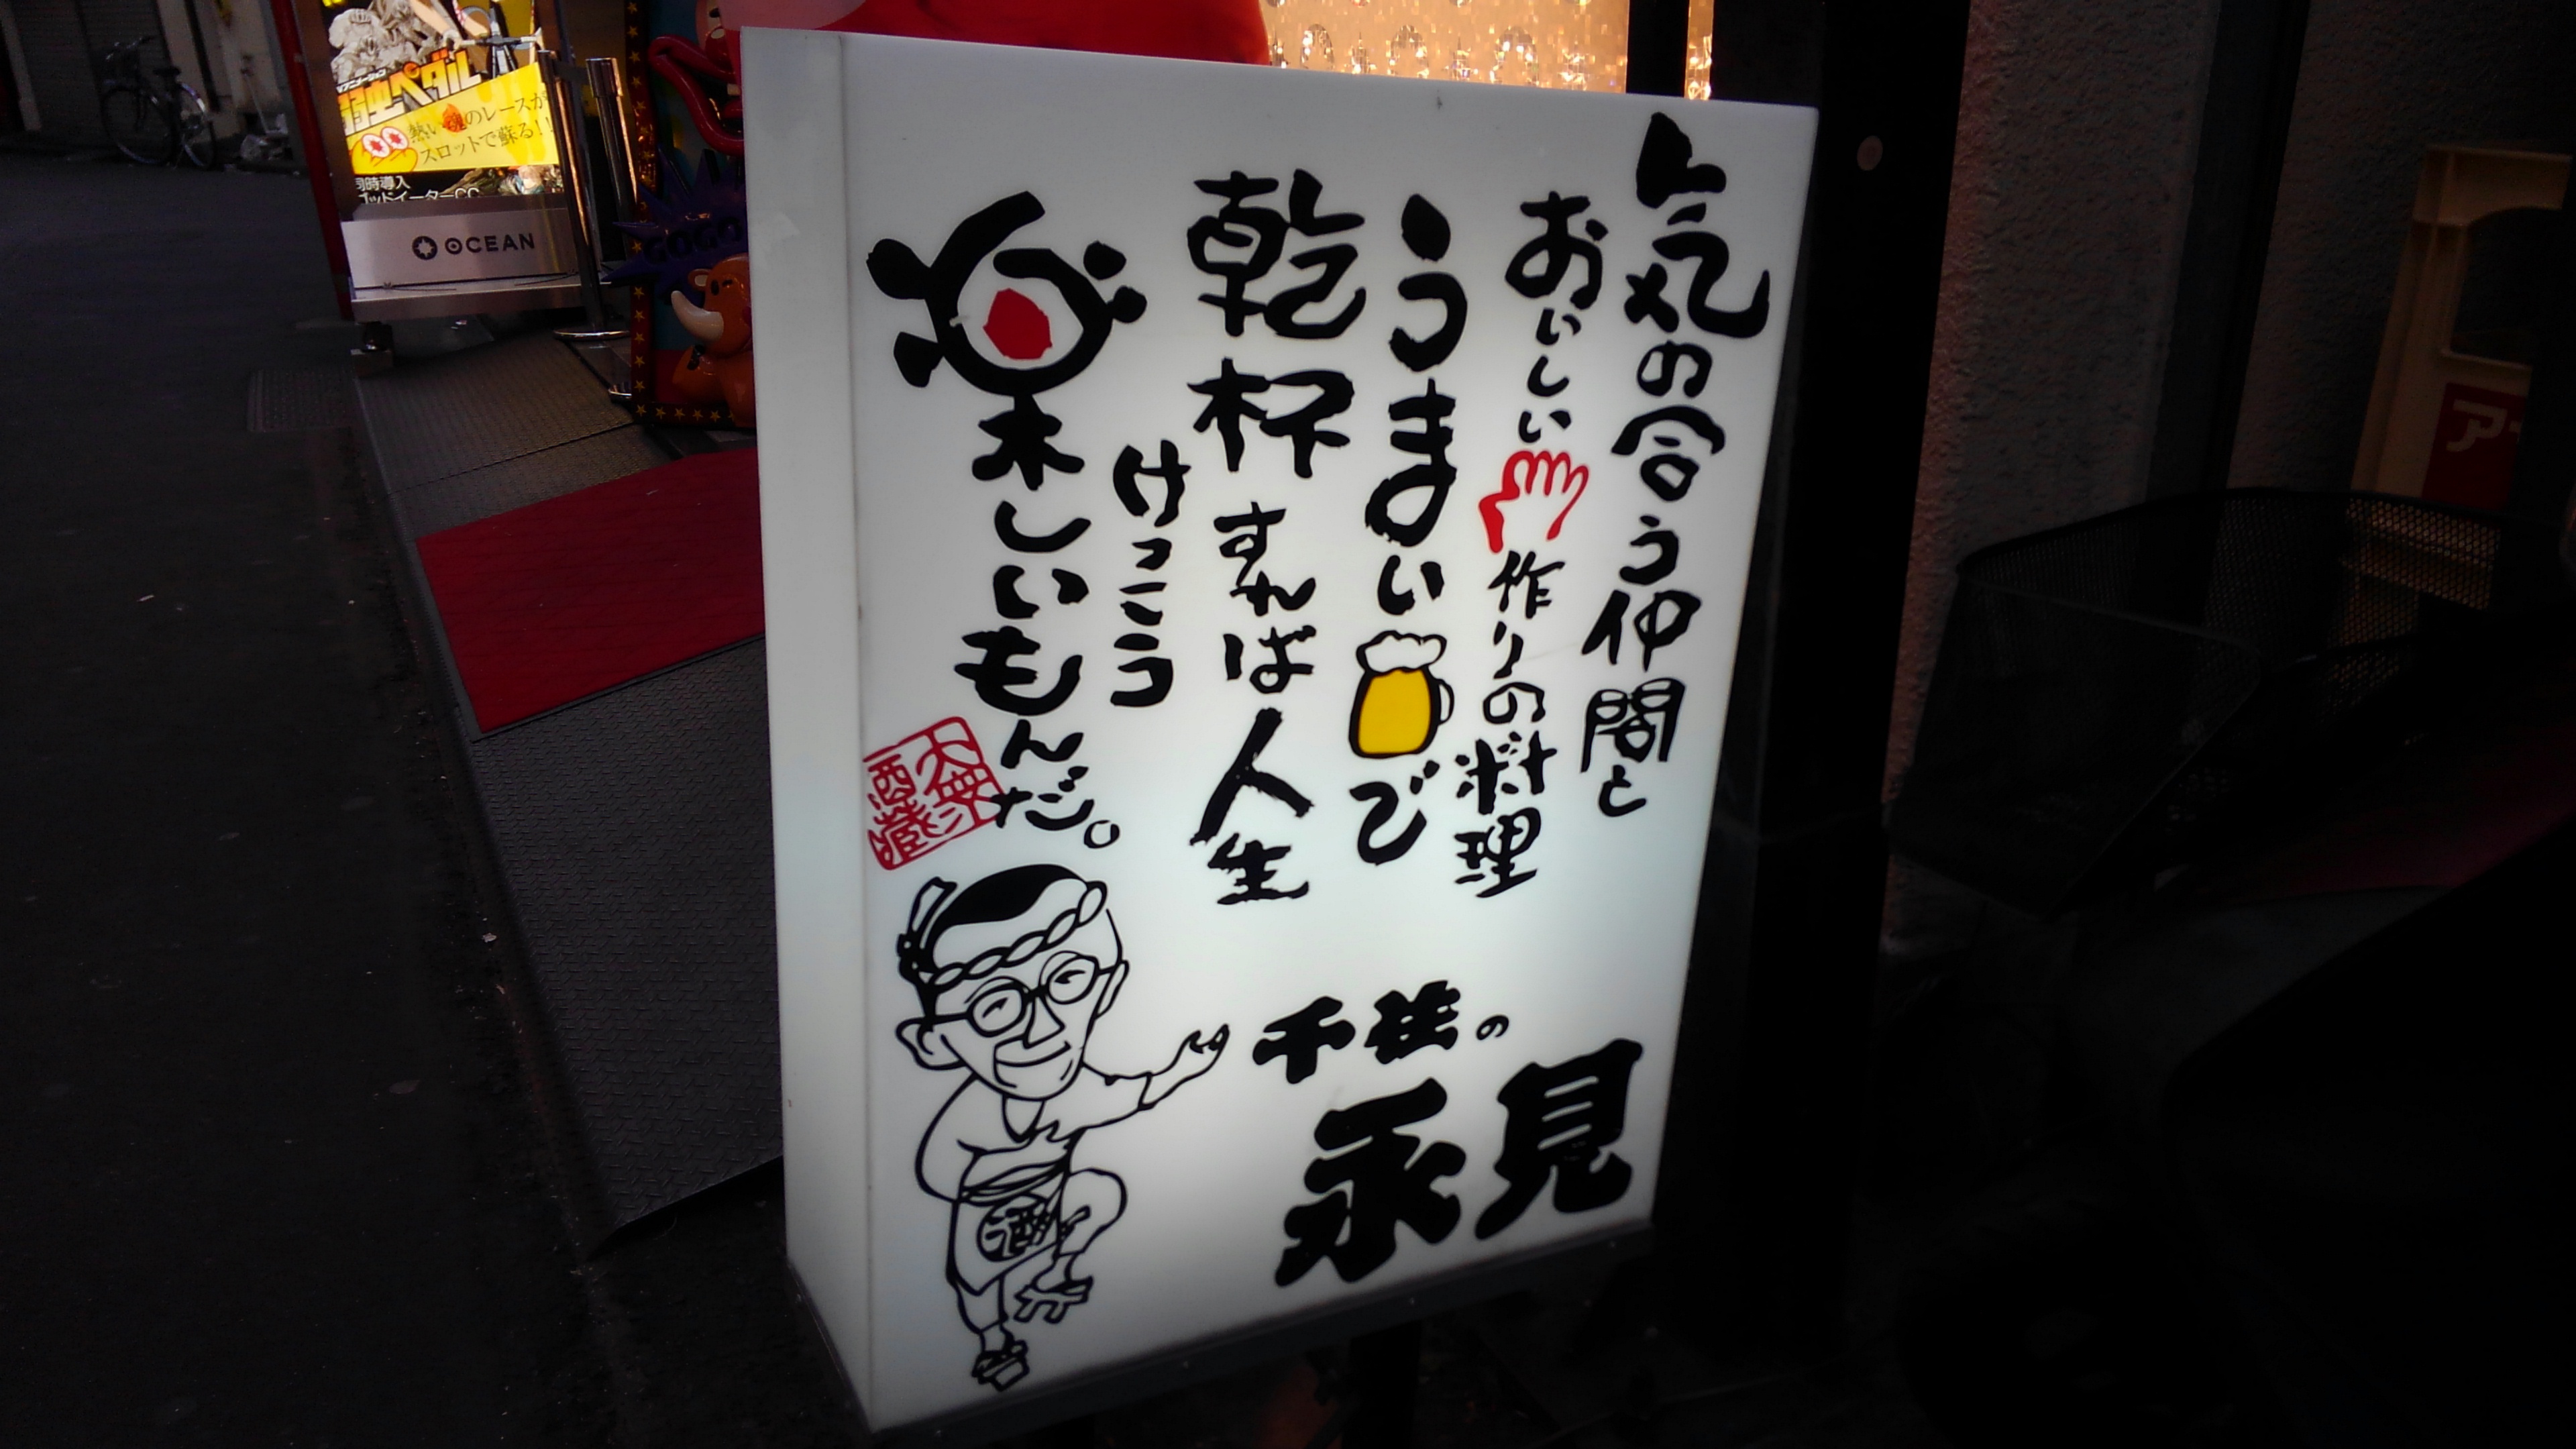 気の合う仲間と
おいしい手作りの料理
うまいで
乾杯すれば人生
けっこう
楽しいもんだ。
大衆
酒蔵
酒
千住の
永見
弱虫ペダル
熱い魂のレースが
スロットで蘇る!!
同時導入
ゴッドイーター
OCEAN
GOGO